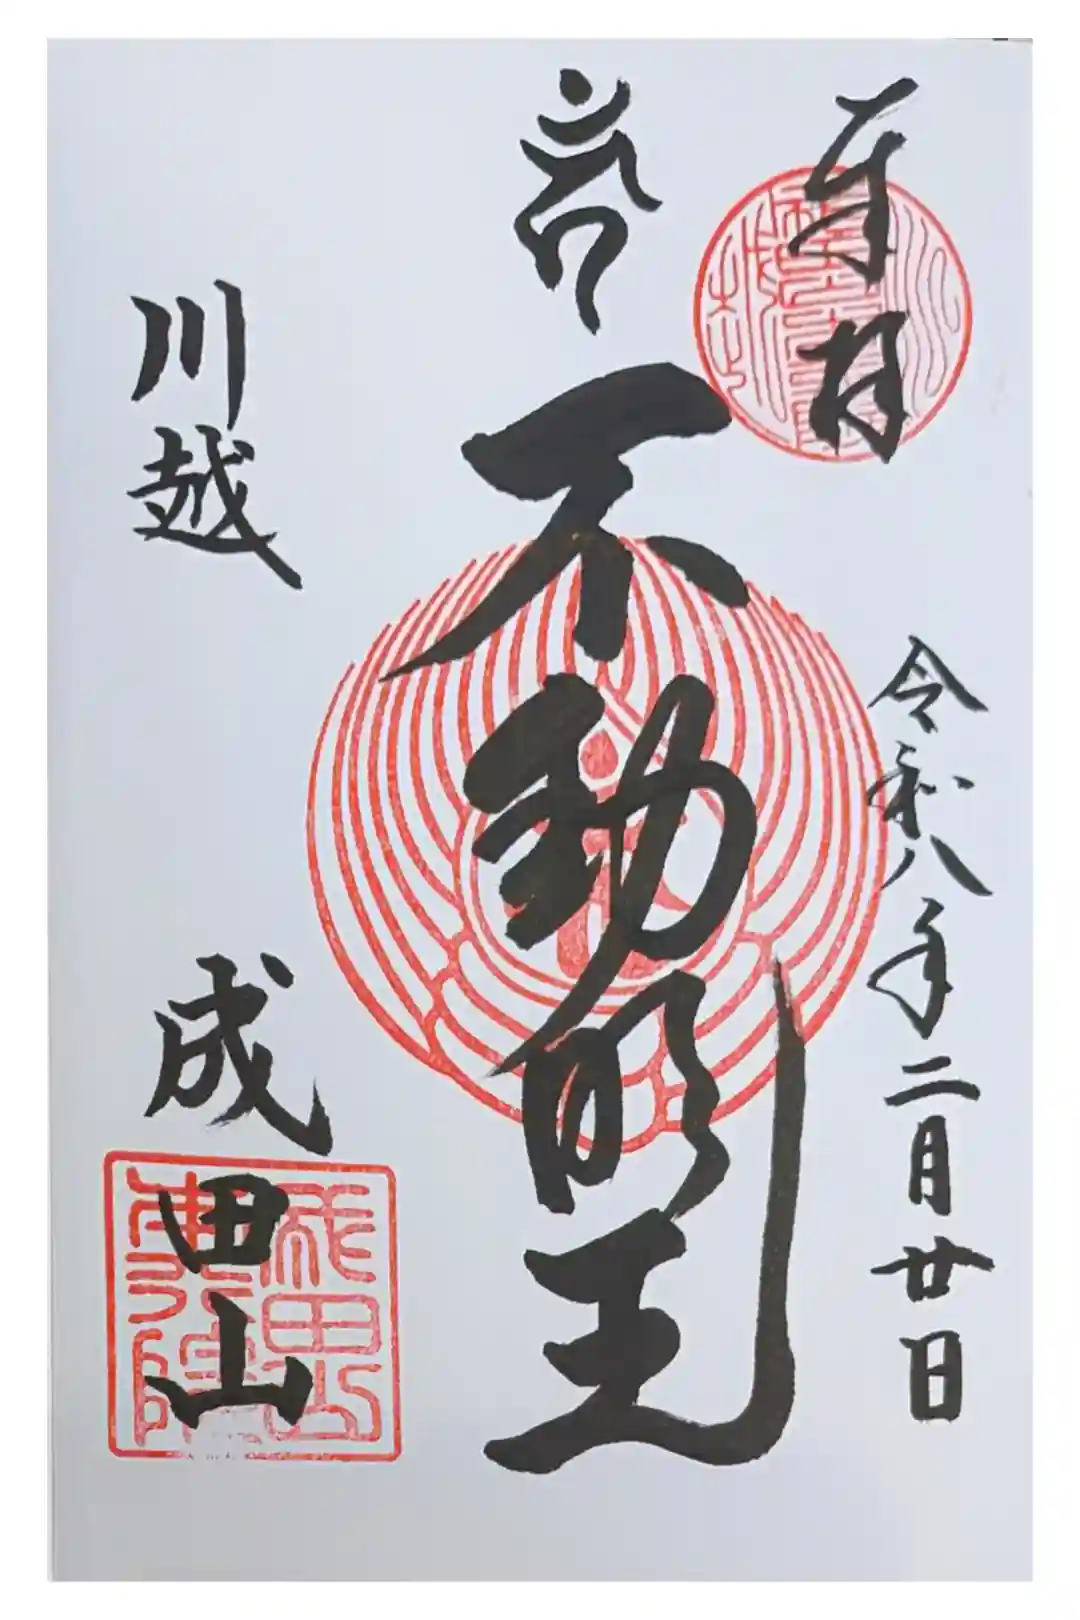 奉拝
令和八年二月廿日
不動明王
川越
成田山